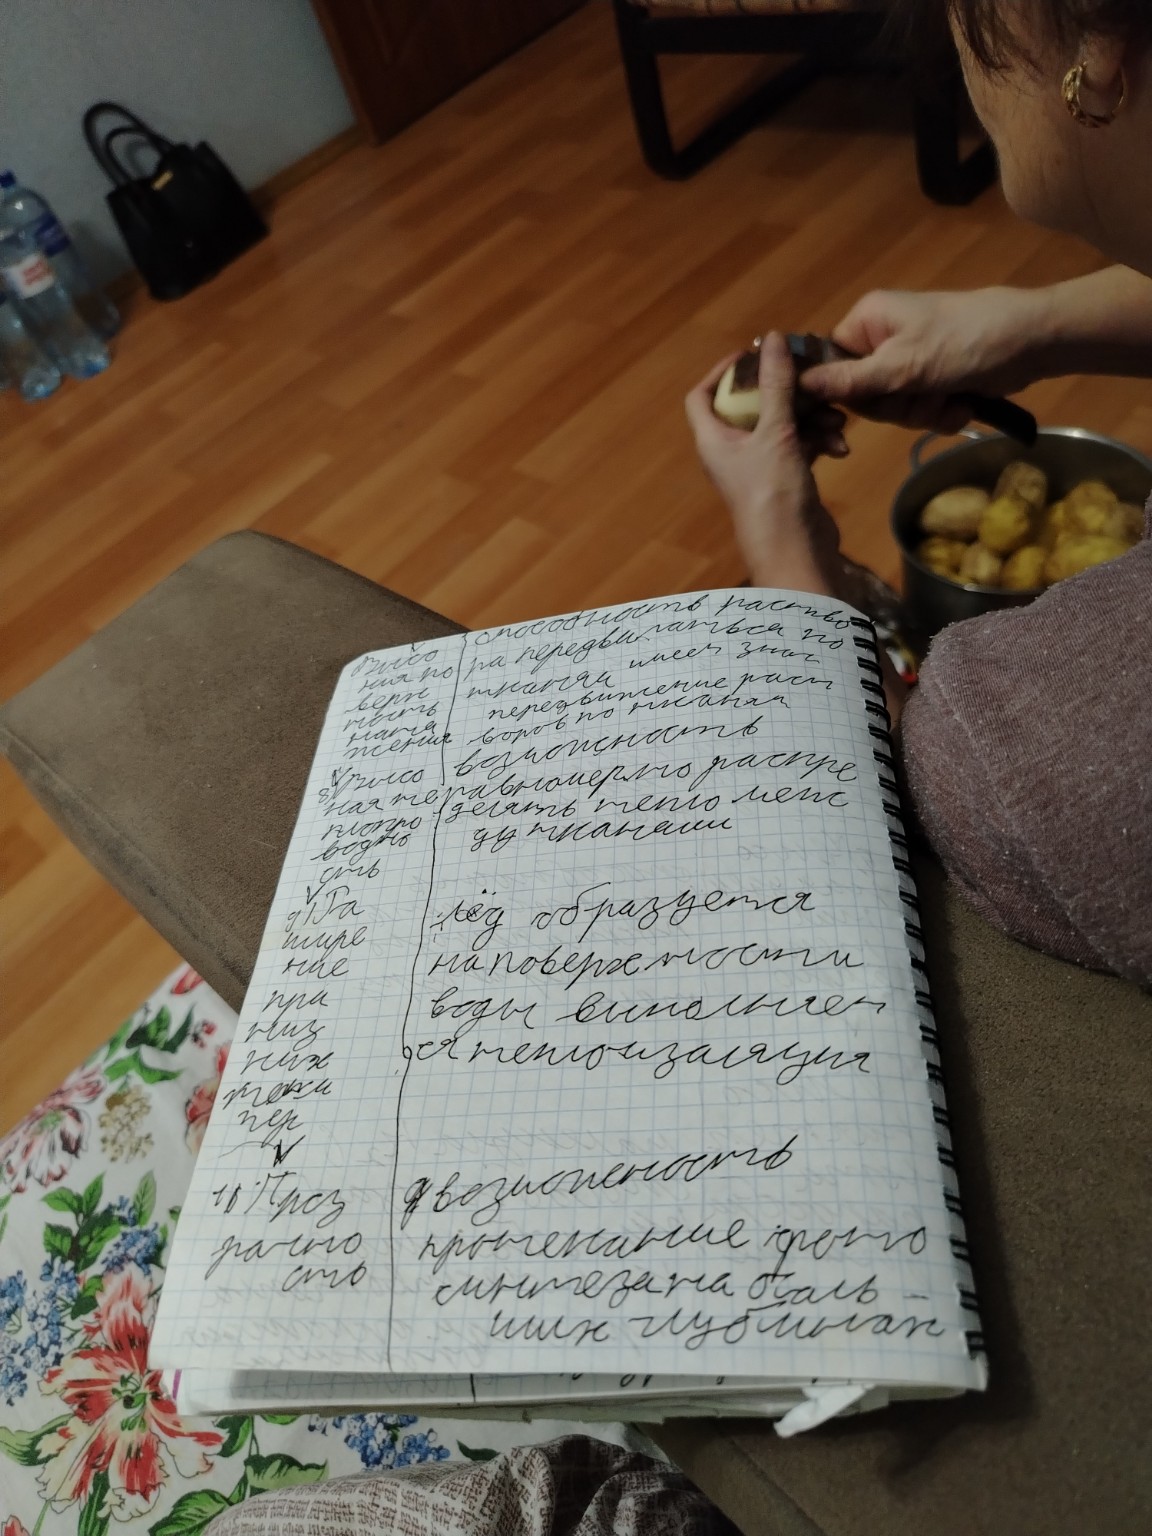 Высо
кая по
верх
ность
натя
жения
способность раство
ра передвигаться по
тканям имеет знач
передвижение раст
воров по тканям
8) Высо
кая те
плопро
водно
сть
возможность
равномерно распре
делять тепло меж
ду тканями
9) Ра
шире
ние
при
низ
ких
тем
пер
лёд образуется
на поверхности
воды выполняет
ся теплоизаляция
10. Проз
рачно
сть
возможность
протекание фото
синтеза на боль
ших глубинах